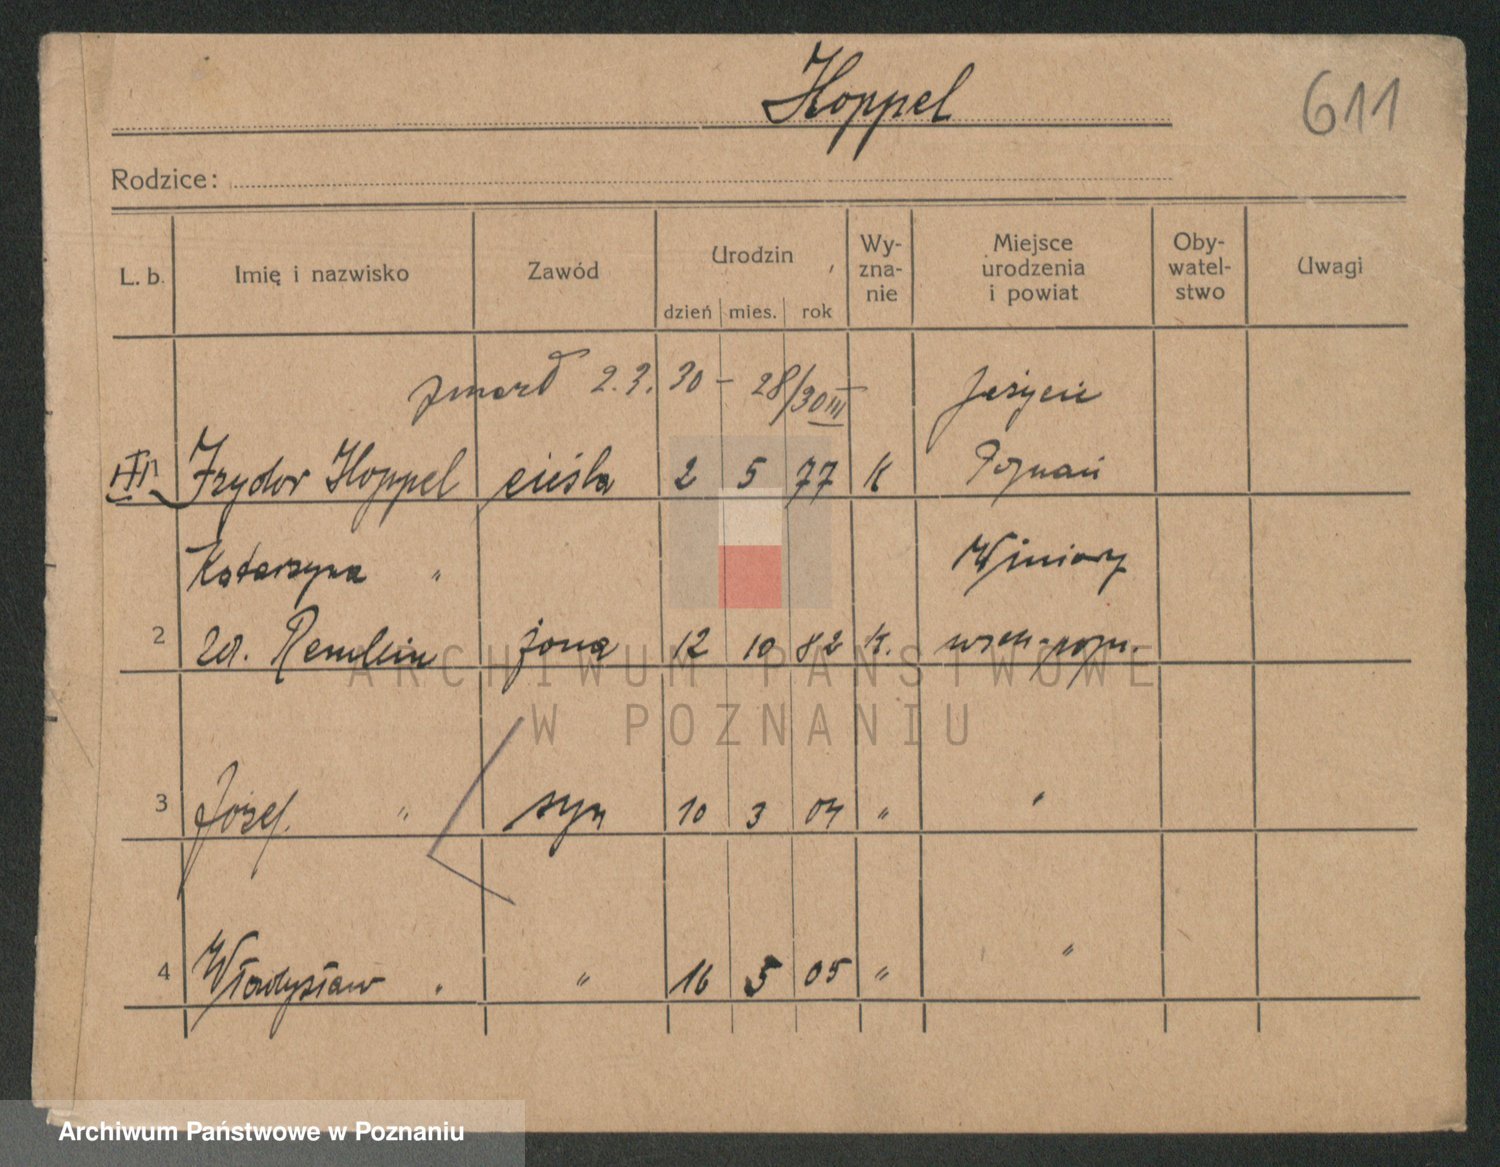 Hoppel
611
Rodzice:
L. b. Imię i nazwisko Zawód Urodzin dzień mies. rok Wy-zna-nie Miejsce urodzenia i powiat Oby-watel-stwo Uwagi
zmarł 2.3.30 – 28/30 III Jeżyce
Izydor Hoppel cieśla 2 5 77 K Poznań
Katarzyna " Winiary
2 zd. żona 12 10 82 K.
3 Józef " syn 10 3 04 " "
4 Władysław " " 16 5 05 " "
ARCHIWUM PAŃSTWOWE
W POZNANIU
Archiwum Państwowe w Poznaniu